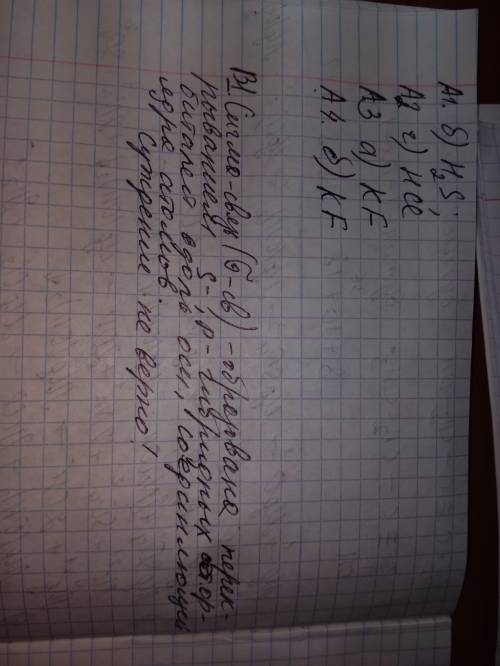 А1. б) H₂S;
А2 г) HCl
А3 а) KF
А4. б) KF
В1 Сигма-связ (б-св) - образована перек-
рыванием s-, p- гибридных ор-
биталей вдоль оси, соединяющей
ядра атомов.
Суждение не верно!